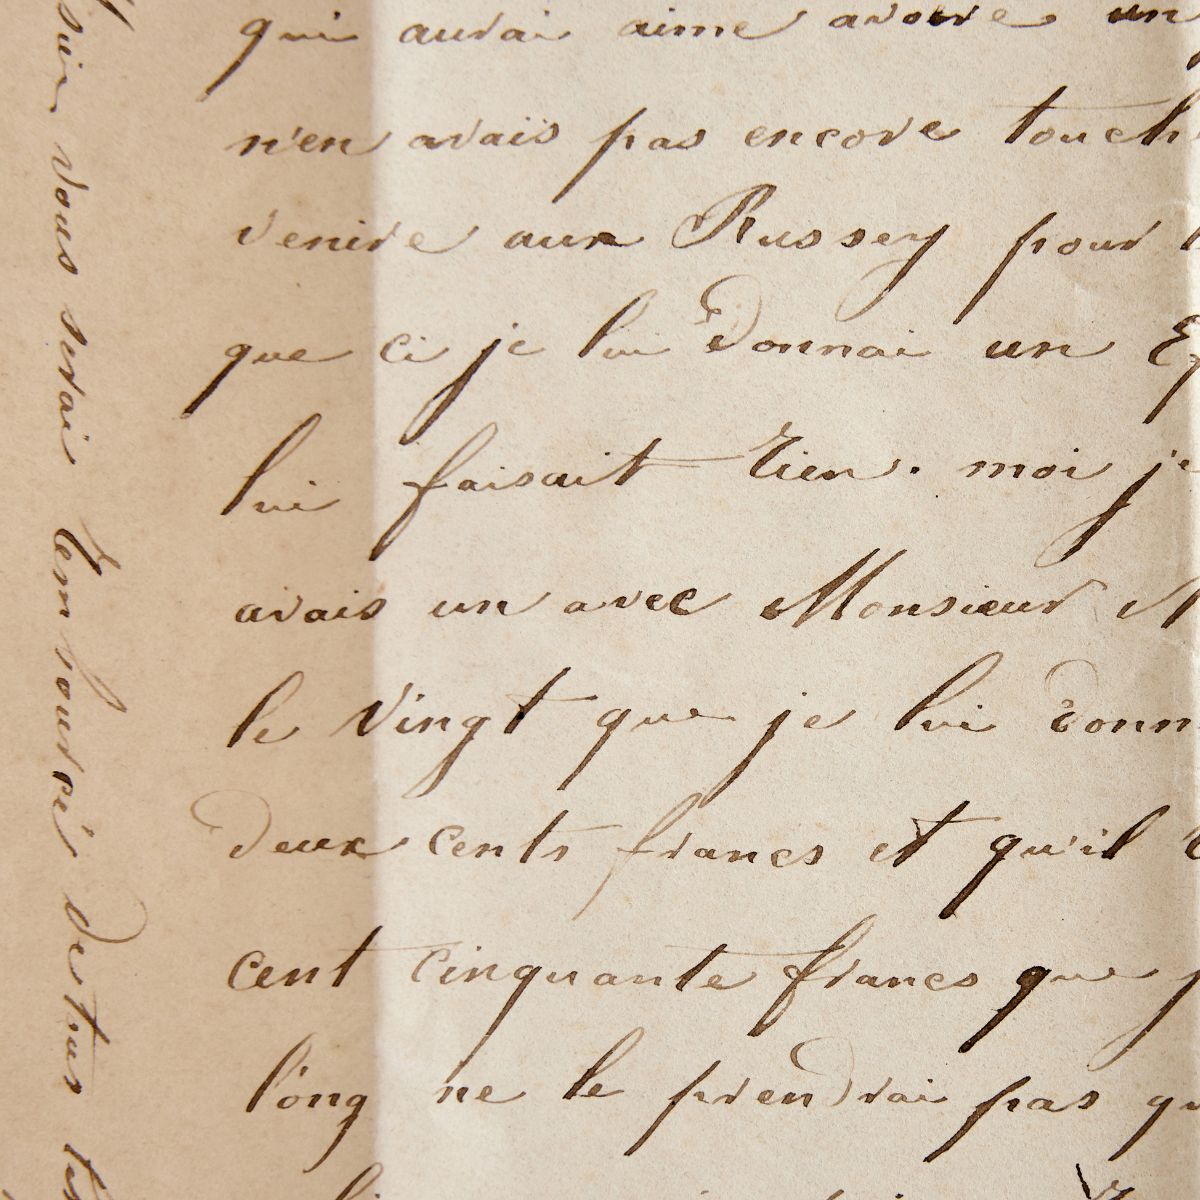 qui aurai aime avoire un
n'en avais pas encore touch
venire aux Russey pour
que ci je lui donnai un
lui faisait rien. moi je
avais un avec Monsieur M
le vingt que je lui donn
deux cents francs et qu'il
cent cinquante francs que
l'ong ne le prendrai pas qu
vous serai remboursé de tous